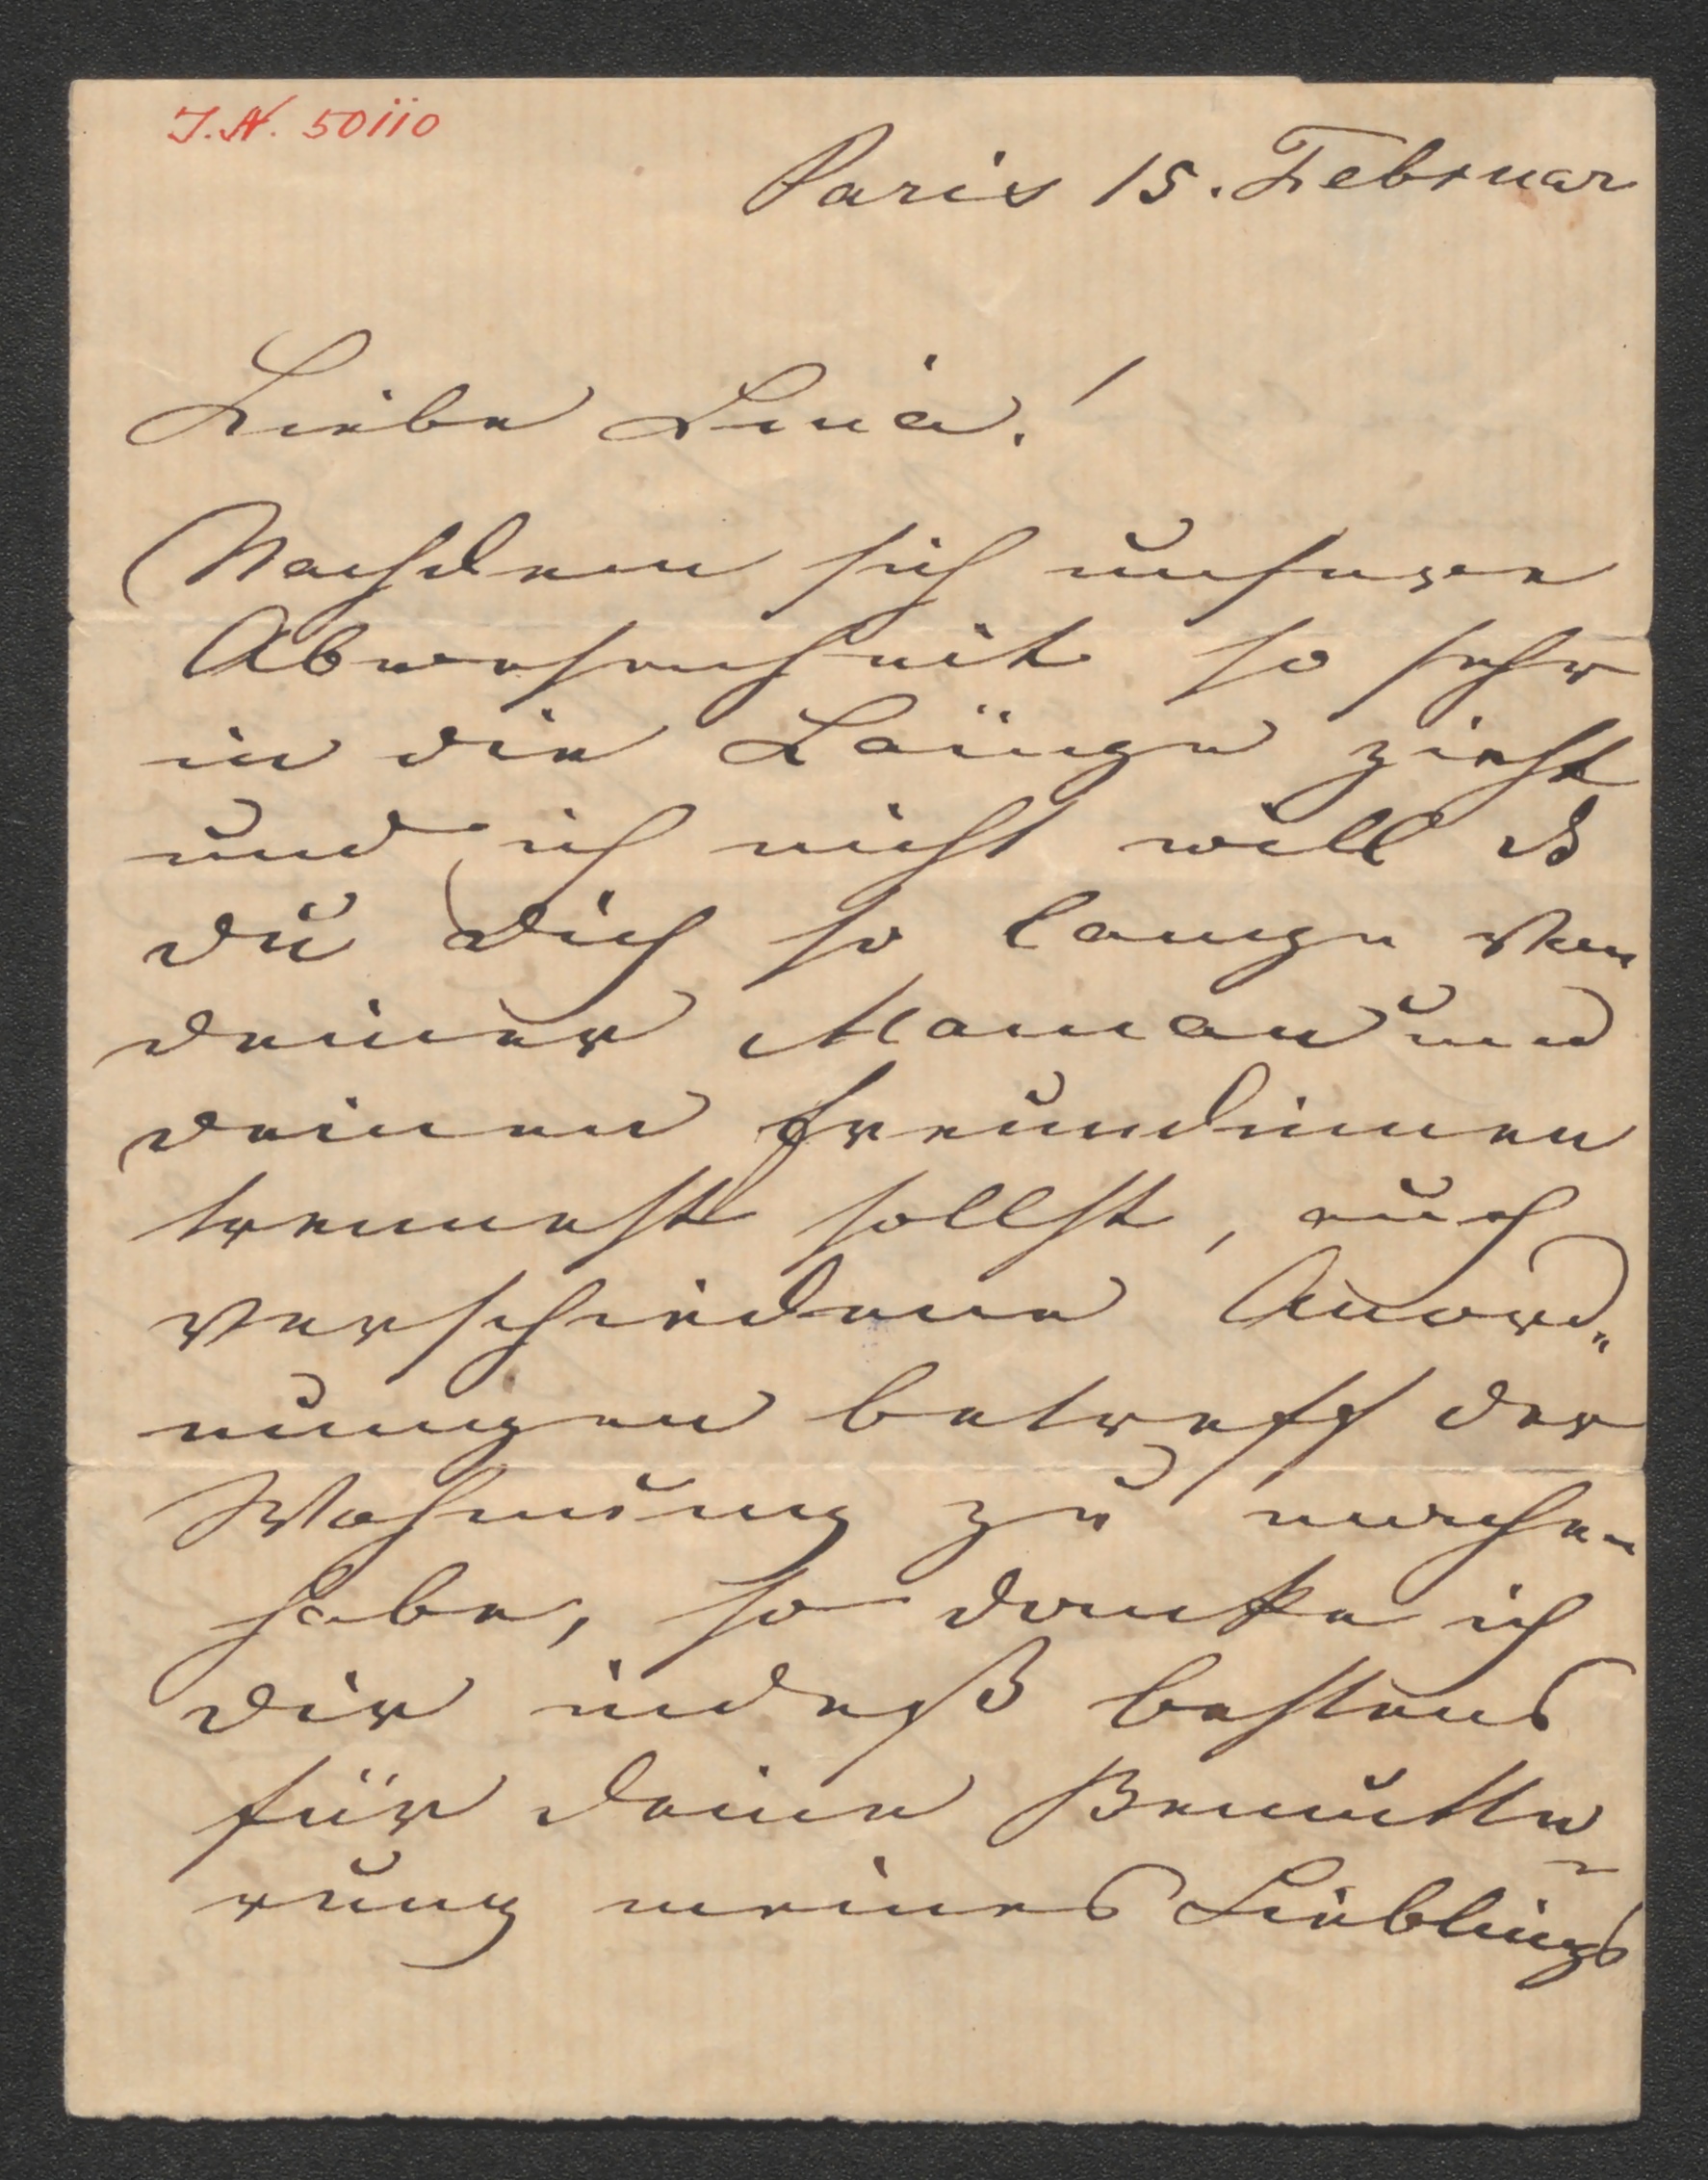 J.N. 50110
Paris 15. Februar
Liebe Lina!
Nachdem sich unsere
Abwesenheit so sehr
in die Länge zieht
und ich nicht will
du dich so lange von
deiner Maman und
deinen Freundinnen
trennest sollst, auch
verschiedene Anord„
nungen betreff der
Wohnung zu machen
habe, so danke ich
dir indeß bestens
für deine Bemutte
rung meines Lieblings